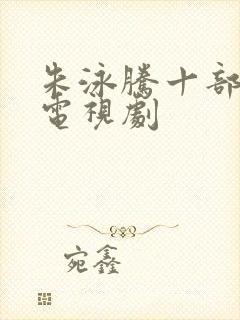 朱泳騰十部
電視劇
宛鑫